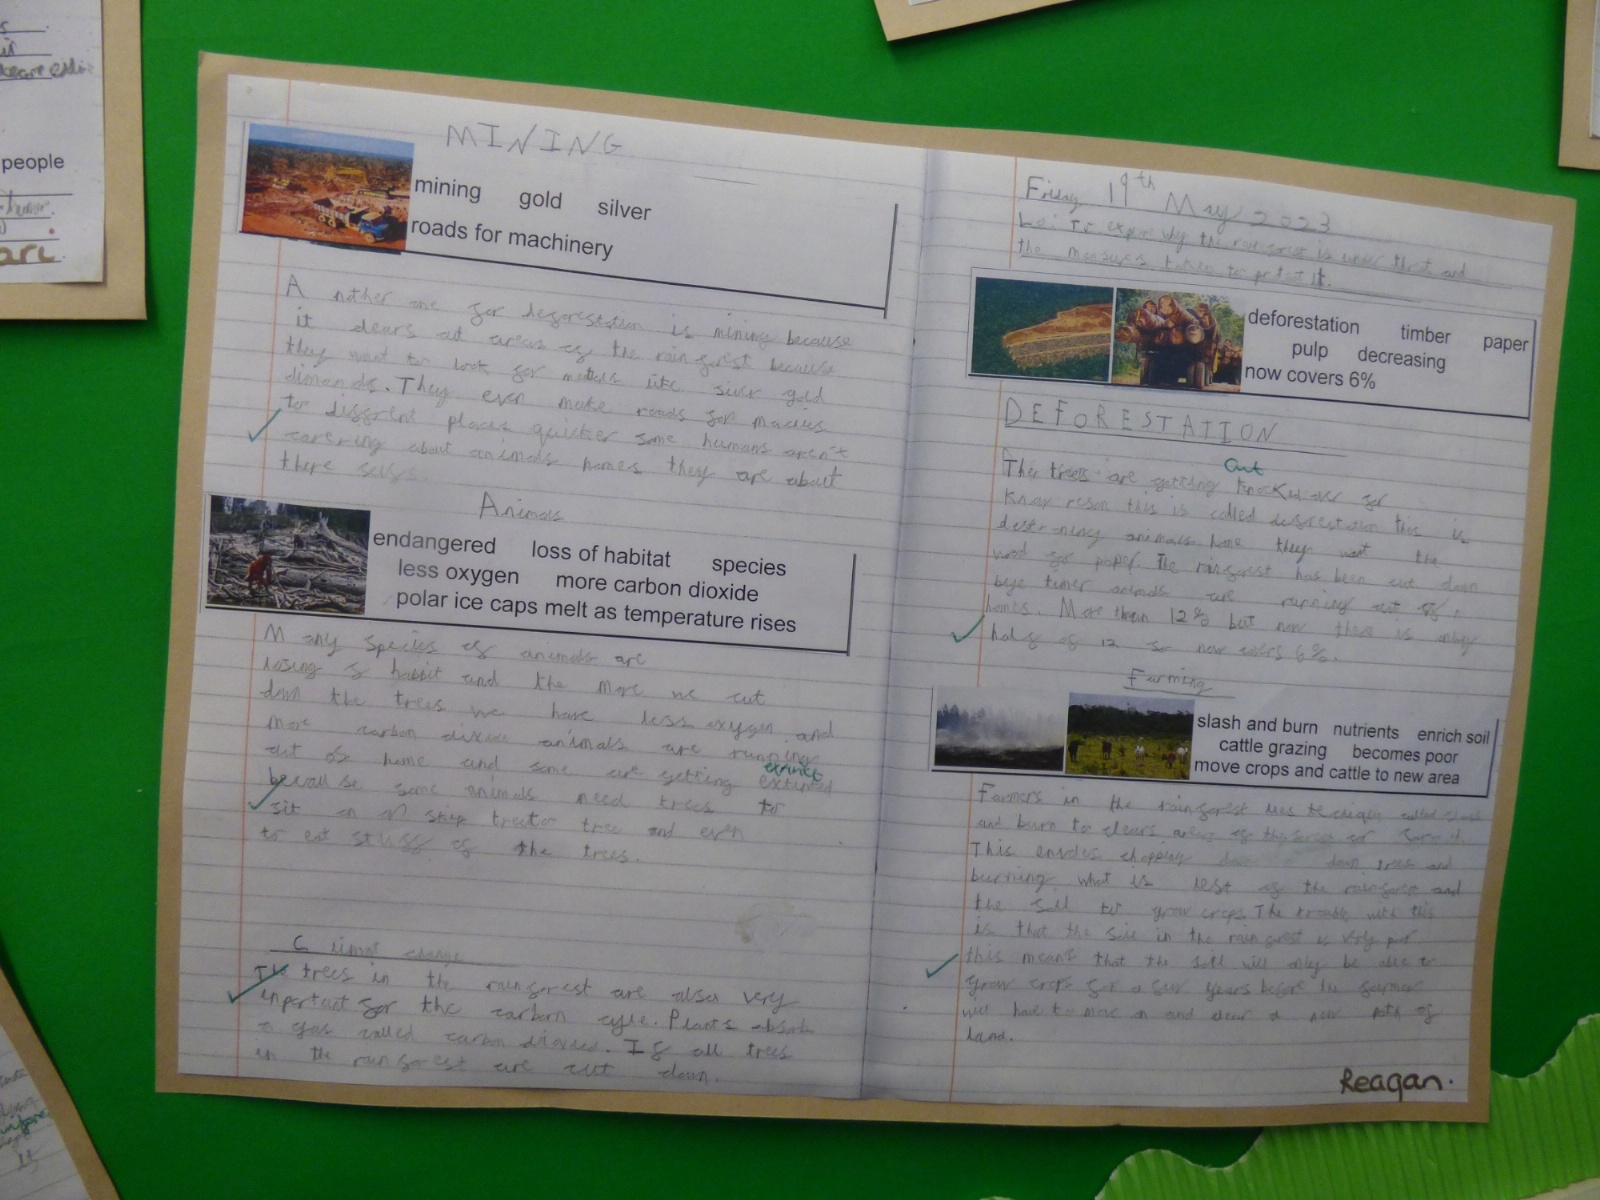 people
MINING
mining gold silver
roads for machinery
A nother one for deforestation is mining because
it clears out areas of the rainforest because
they want to look for metals like silver gold
dimands. They even make roads for macies
to diffrent places quicker some humans aren't
carering about animals homes they are about
there selfs.
Animals
endangered loss of habitat species
less oxygen more carbon dioxide
polar ice caps melt as temperature rises
M any species of animals are
losing of habbit and the more we cut
down the trees we have less oxygen and
more carbon dixide animals are running
out of home and some are getting extinted
extinct
because some animals need trees to
sit on or skip tree to tree and even
to eat stuff of the trees.
C limat change
The trees in the rainforest are also very
inportant for the carbon cycle. Plants absorb
a gas called carbon dioxied. If all trees
in the rainforest are cut down.
Friday 19th May 2023
Lo: To explore why the rainforest is under threat and
the measures taken to protect it.
deforestation timber paper
pulp decreasing
now covers 6%
DEFORESTATION
Cut
The trees are getting knocked over for
reson this is called this is
animals home they want the
wood for paper. The rainforest has been cut down
bye timer animals are running out of
homes. More than 12% but now there is only
half of 12 so now covers 6%.
Farming
slash and burn nutrients enrich soil
cattle grazing becomes poor
move crops and cattle to new area
Farmers in the rainforest called slash
and burn to clears areas of the forest for
This chopping down trees and
burning what is left of the rainforest and
the grow crops. The trouble with this
is that the in the rainforest is very
this means that the will only be able to
grow crops for a few years before the farmer
will have to move on and clear a new of
land.
Reagan.